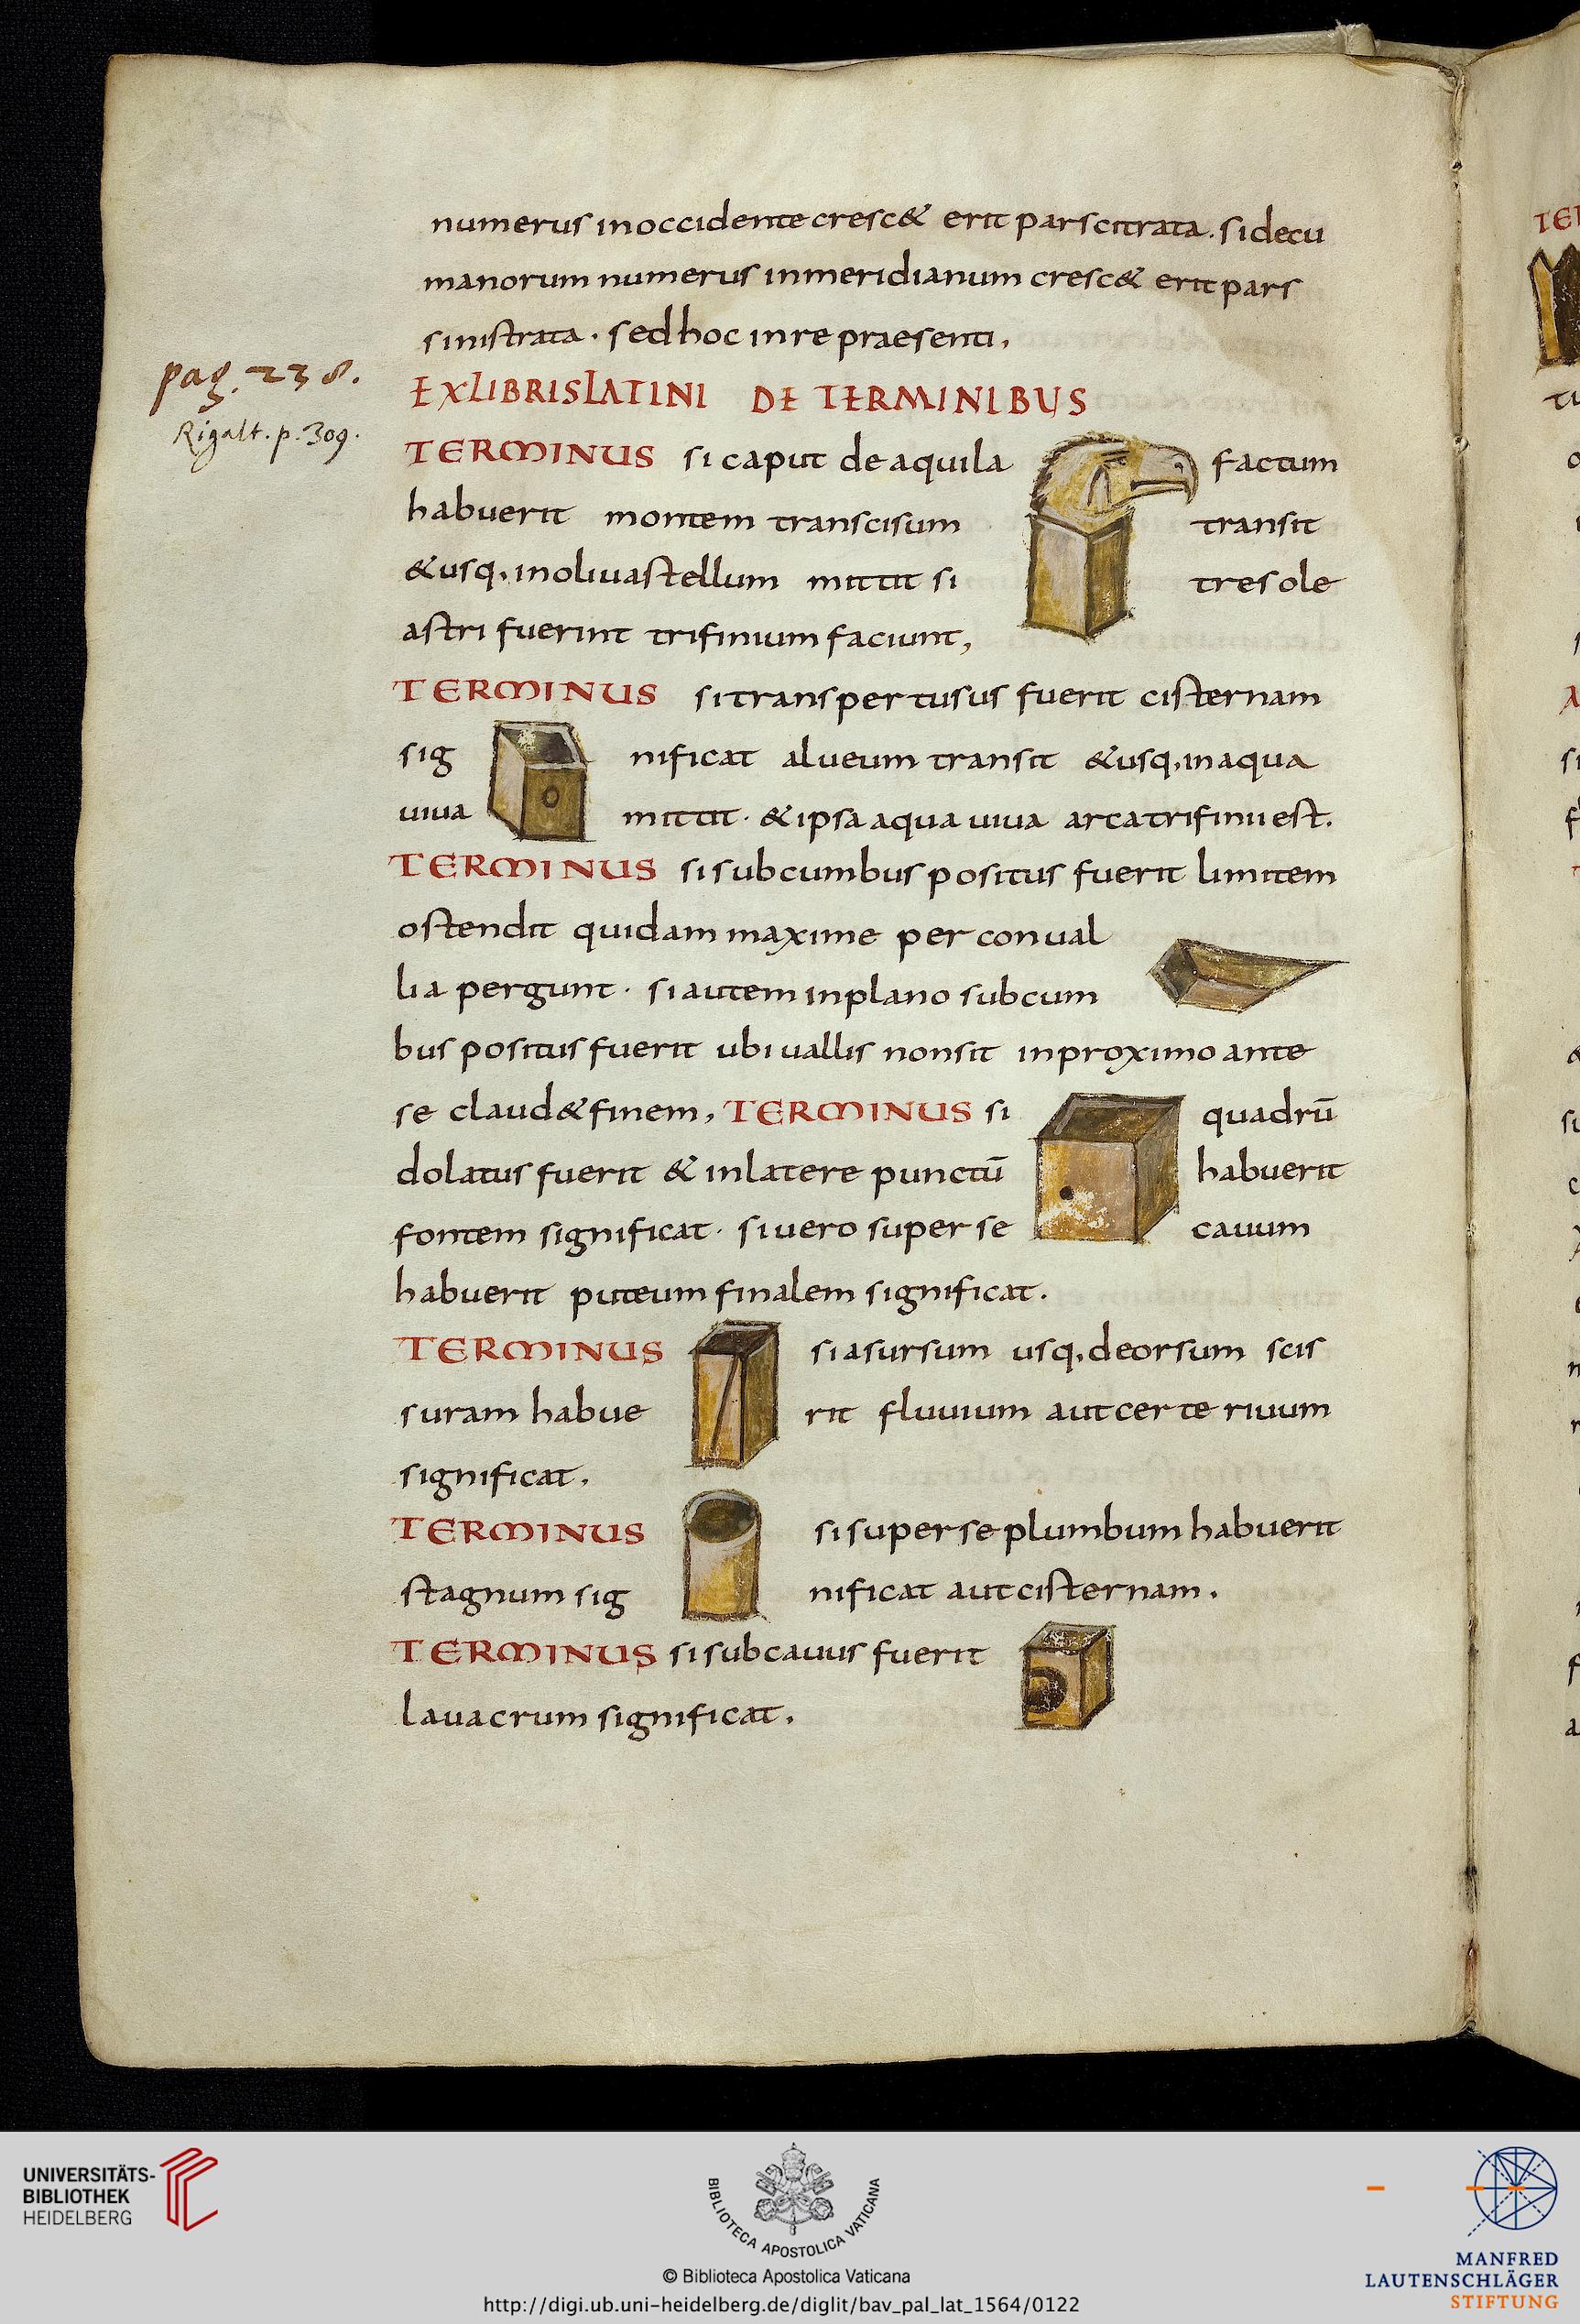 numerus inoccidente cresc& erit pars citrata. si decu
manorum numerus inmeridianum cresc& erit pars
sinistrata. sed hoc in re praesenti,
pag. 238.
EXLIBRIS LATINI DE TERMINIBUS
Rigalt. p. 309.
TERMINUS si caput de aquila factum
habuerit montem transcisum transit
&usq, in oliuastellum mittit si tres ole
astri fuerint trifinium faciunt,
TERMINUS si transpertusus fuerit cisternam
significat alueum transit &usq, in aqua
uiua mittit. & ipsa aqua uiua arca trifinii est.
TERMINUS si subcumbus positus fuerit limitem
ostendit quidam maxime per conual
lia pergunt. si autem inplano subcum
bus positus fuerit ubi uallis non sit in proximo ante
se claud& finem, TERMINUS si quadrū
dolatus fuerit & in latere punctū habuerit
fontem significat. si uero super se cauum
habuerit puteum finalem significat.
TERMINUS si a sursum usq, deorsum scis
suram habuerit fluuium aut certe riuum
significat,
TERMINUS si super se plumbum habuerit
stagnum significat aut cisternam.
TERMINUS si subcauus fuerit
lauacrum significat,
UNIVERSITÄTS-
BIBLIOTHEK
HEIDELBERG
BIBLIOTECA APOSTOLICA VATICANA
© Biblioteca Apostolica Vaticana
http://digi.ub.uni-heidelberg.de/diglit/bav_pal_lat_1564/0122
MANFRED
LAUTENSCHLÄGER
STIFTUNG